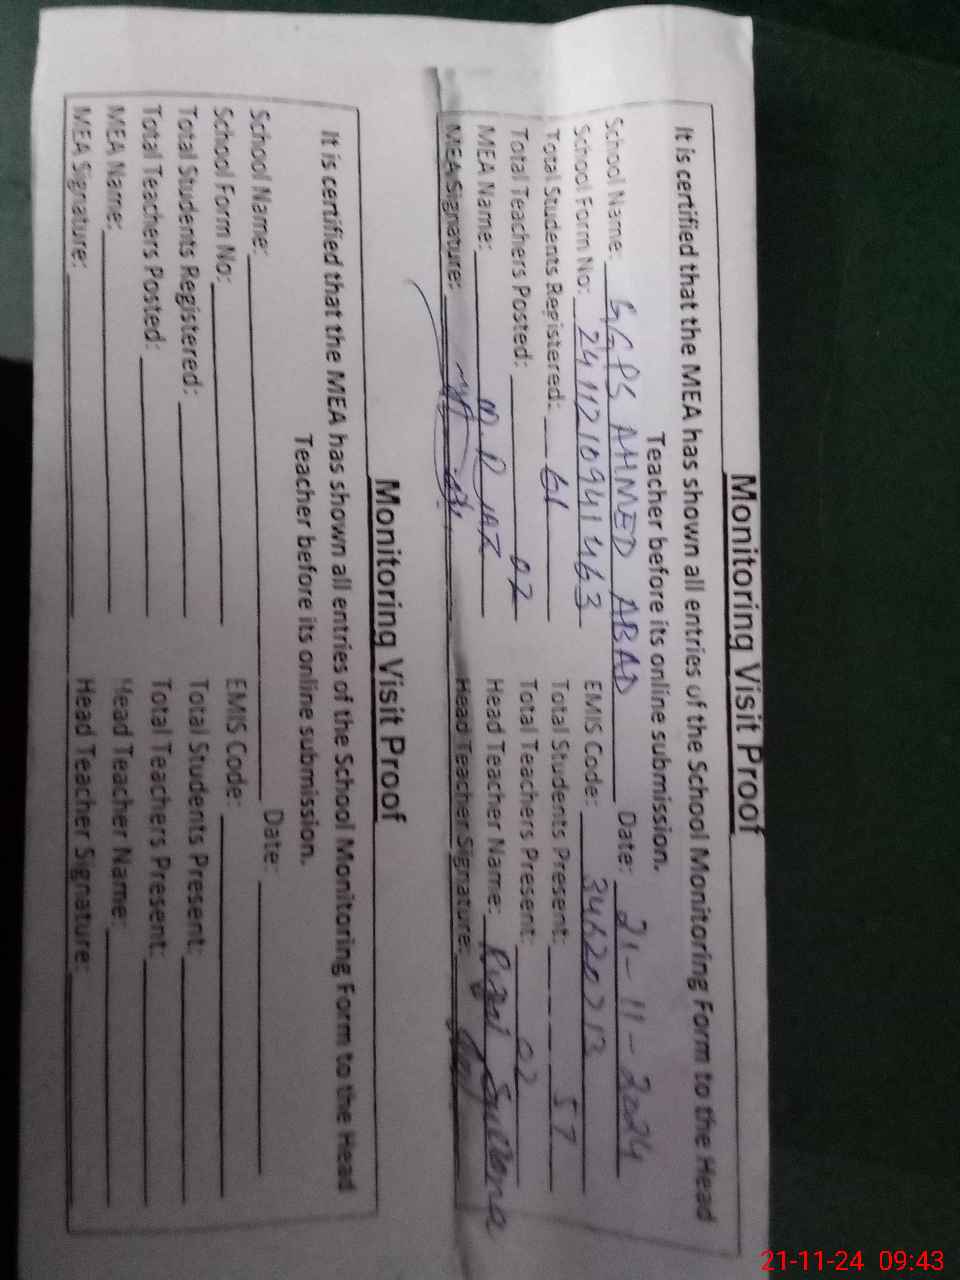 Monitoring Visit Proof
It is certified that the MEA has shown all entries of the School Monitoring Form to the Head
Teacher before its online submission.
School Name: GGPS AHMED ABAD Date: 21-11-2024
School Form No: 2411210941463 EMIS Code: 34620713
Total Students Registered: 61 Total Students Present: 57
Total Teachers Posted: 02 Total Teachers Present: 02
MEA Name: Head Teacher Name: Sultana
MEA Signature: Head Teacher Signature:
Monitoring Visit Proof
It is certified that the MEA has shown all entries of the School Monitoring Form to the Head
Teacher before its online submission.
School Name: Date:
School Form No: EMIS Code:
Total Students Registered: Total Students Present:
Total Teachers Posted: Total Teachers Present:
MEA Name: Head Teacher Name:
MEA Signature: Head Teacher Signature:
21-11-24 09:43